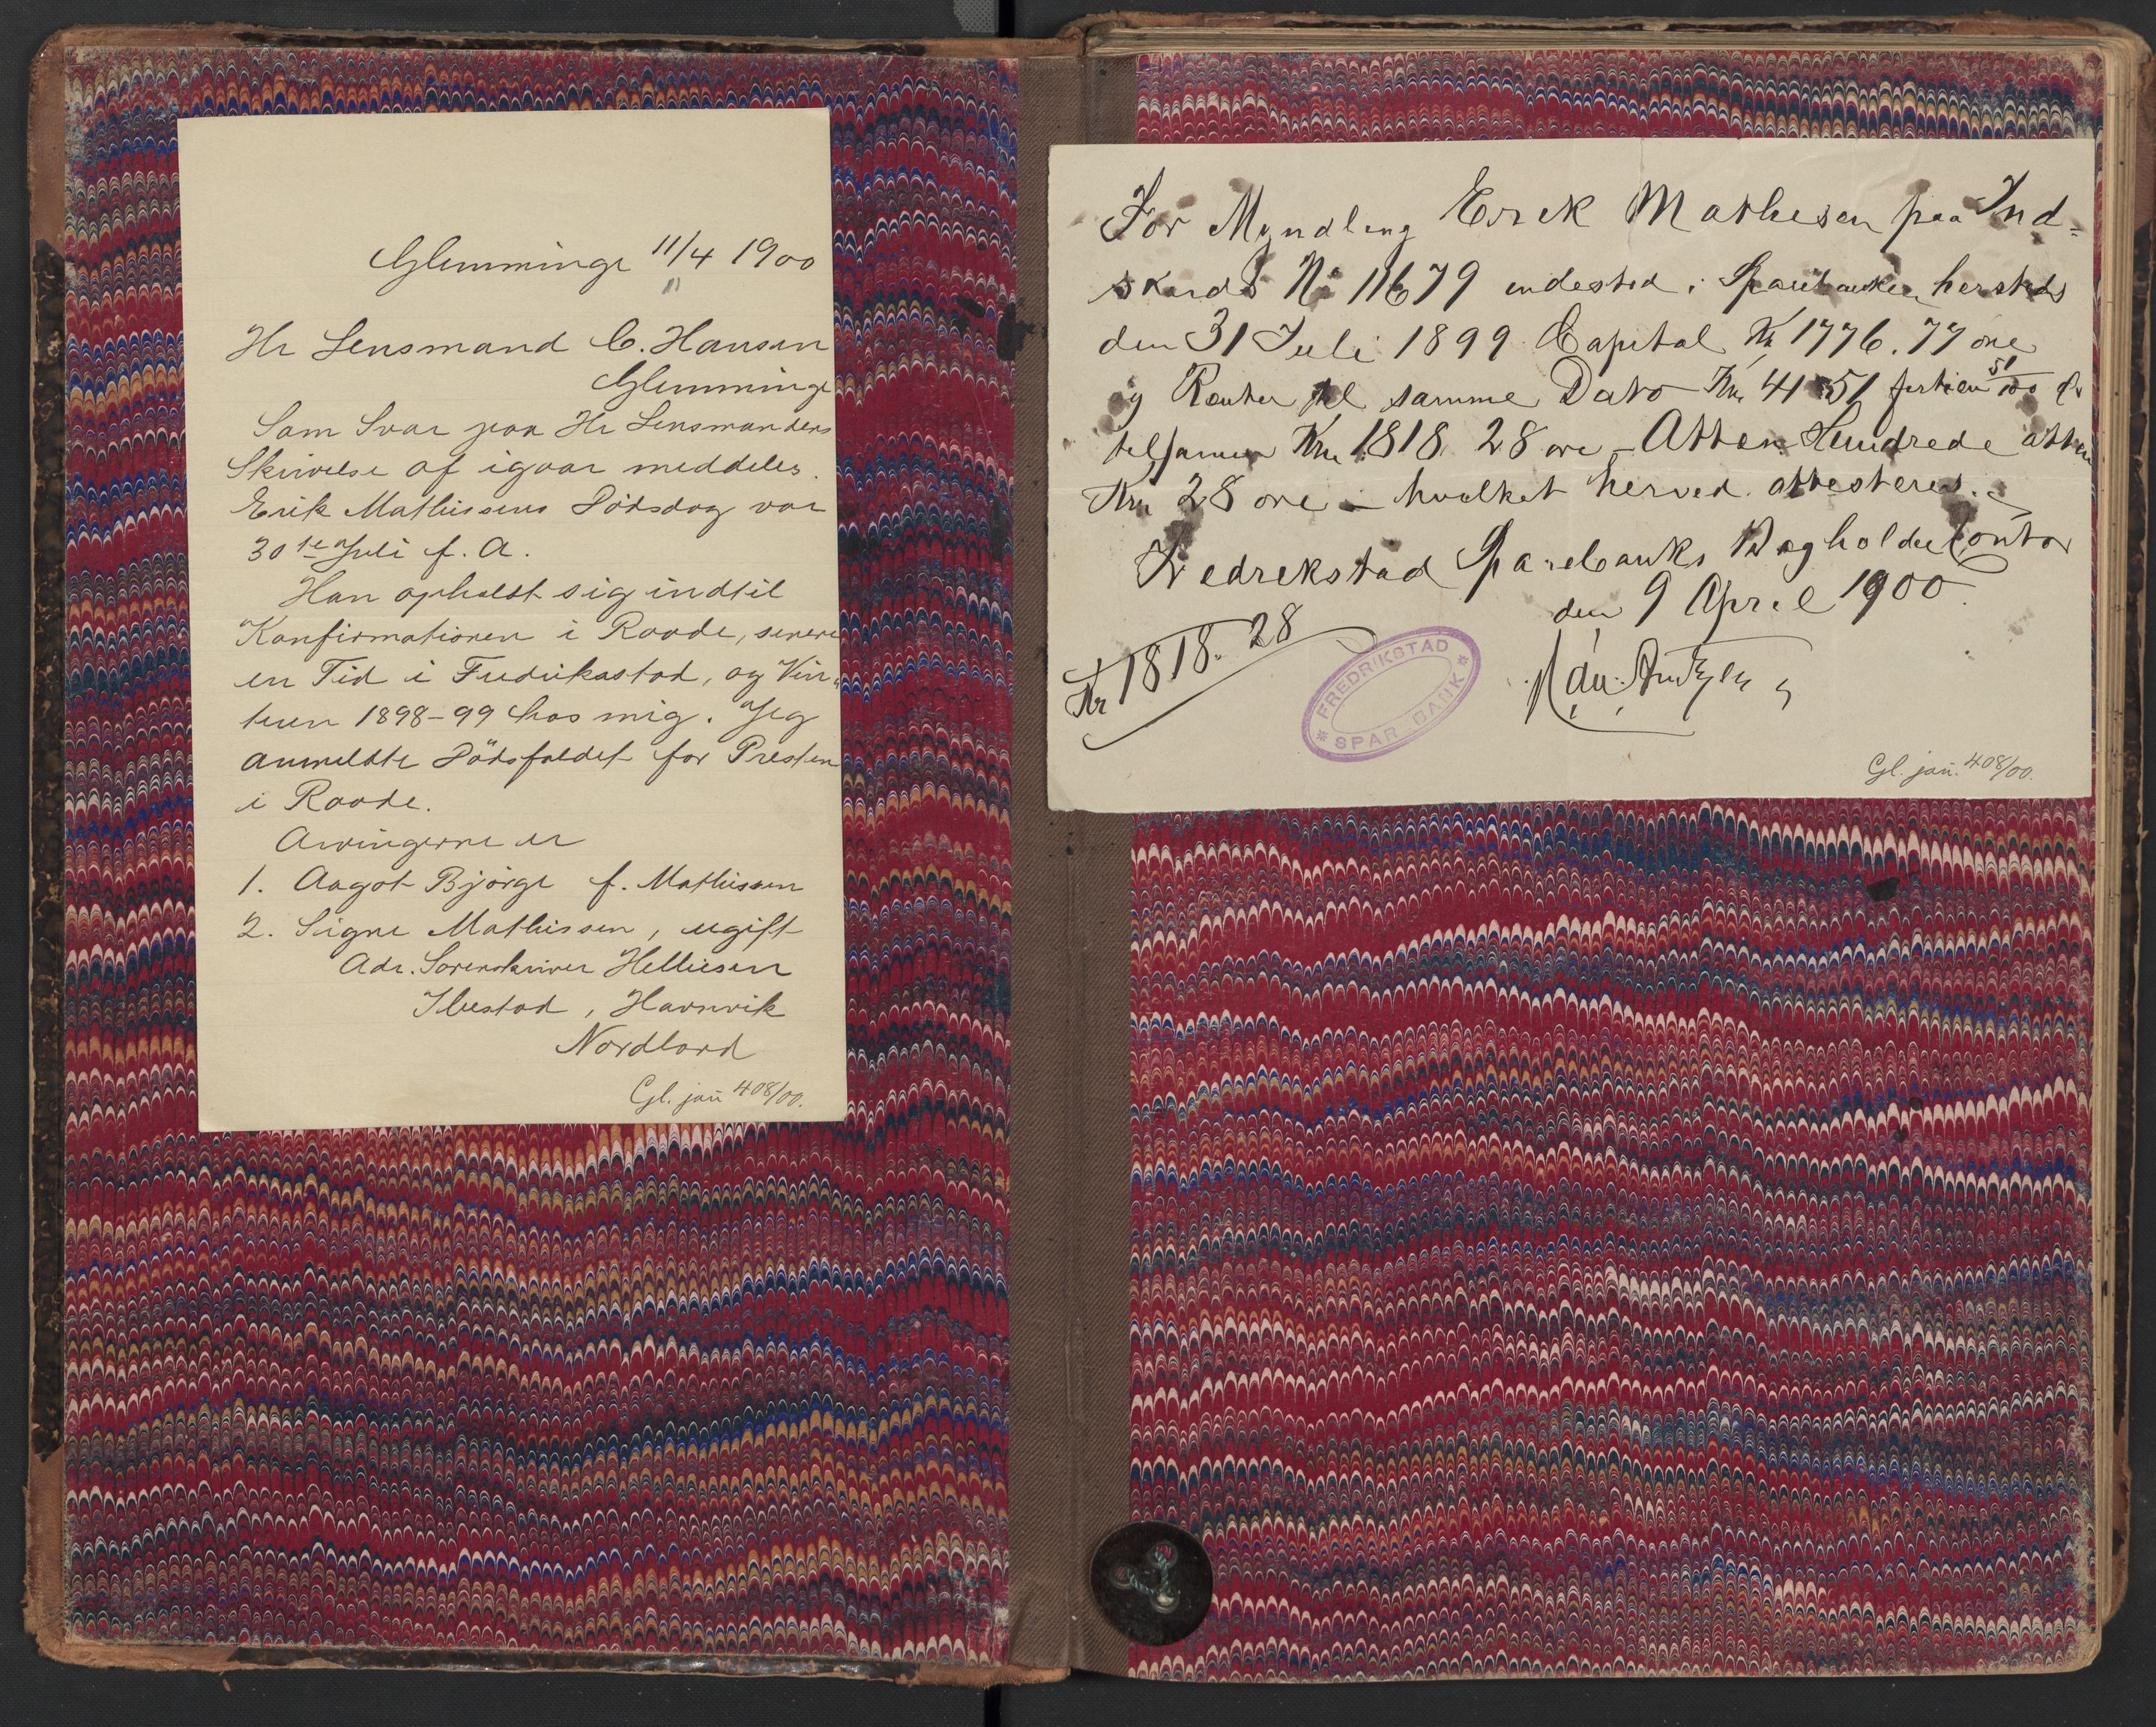 Glemminge 11/4 1900
Hr Lensmand C. Hansen
Glemminge
Som Svar paa Hr Lensmandens
Skrivelse af igaar meddeles.
Erik Mathissens Dödsdag var
30te Juli f. A.
Han opholdt sig indtil
Konfirmationen i Raade, senere
en Tid i Fredrikastad, og Vin-
teren 1898-99 hos mig. Jeg
anmeldte Dödsfaldet for Presten
i Raade.
Arvingerne er
1. Aagot Björge f. Mathissen
2. Signe Mathissen, ugift
Adr. Sorenskriver Helliesen
Ibestad, Havnvik
Nordland
Gl. jañ 408/00.
For Myndling Erik Mathesen paa Ind=
skuds No 11679 indestod i Sparebanken hersteds
den 31 Juli 1899 Capital Kr 1776.77 øre
og Renter til samme Dato Kr. 41.51 51/100
tilsamen Kr. 1818 28 øre - Atten Hundrede atten
Kr. 28 øre - hvilket herved attesteres.
Fredrekstad Sparebanks Bogholder Contor
den 9 April 1900.
Kr 1818.28
FREDRIKSTAD
SPAR BANK
Gl. jañ. 408/00.